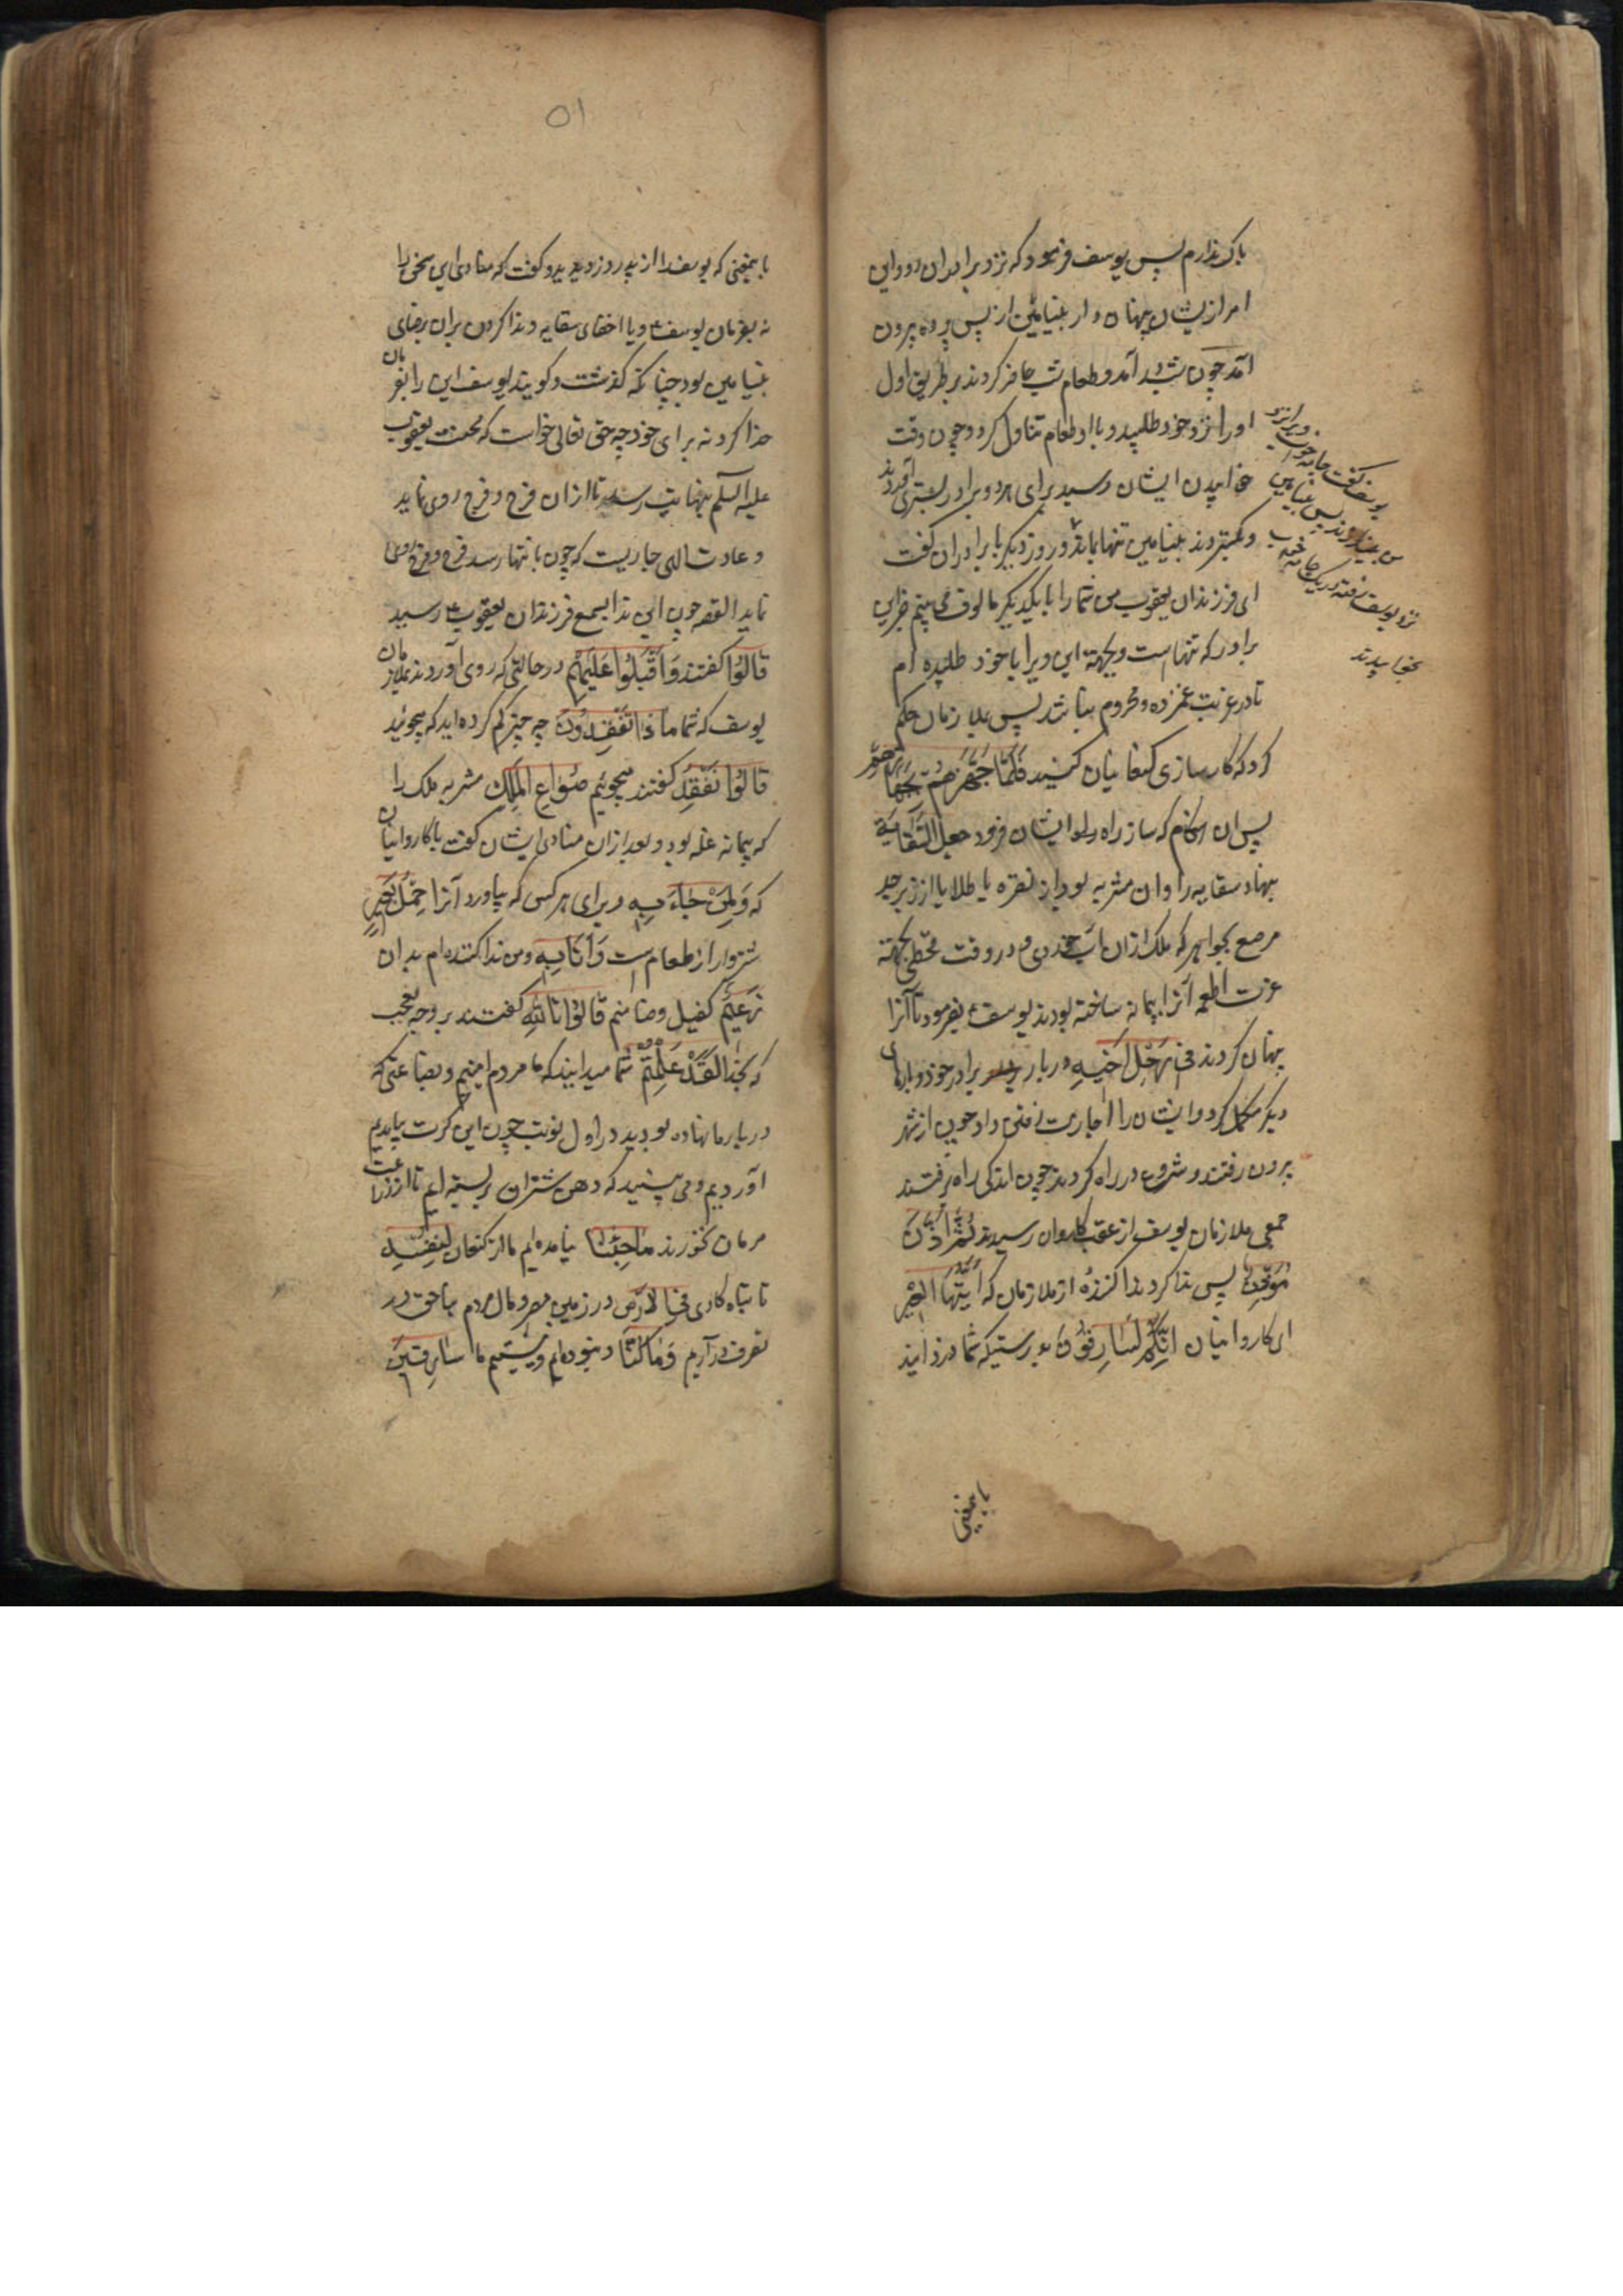 باک ندارم پس یوسف فرمود که نزد برادران رو و این
امر از ایشان پنهان دار بنیامین از پس پرده بیرون
آمد چون شب درآمد و طعام شب حاضر کردند بر طریق اول
او را نزد خود طلبید و با او طعام تناول کرد و چون وقت
خوابیدن ایشان رسید برای هر دو برادر بستری آوردند
و گستردند بنیامین تنها بماند و روز دیگر با برادران گفت
ای فرزندان یعقوب من شما را با یکدیگر مالوف می بینم جز این
برادر که تنهاست و بجهة این ویرا با خود طلبیده ام
تا در غربت غمزده و محروم نباشد پس ملازمان حکم
کرد که کارسازی کنعانیان کنید فَلَمّا جَهَّزَهُمْ بِجَهازِهِمْ
پس آن هنگام که ساز راه برای ایشان فرمود جعل السِّقایَةَ
بنهاد سقایه را و ان مشربه بود از نقره یا طلا یا از زبرجد
مرصع بجواهر که ملک ازان آب خوردی و در وقت قحطی بجهة
عزت اطعمه آنرا پیمانه ساخته بودند یوسف بفرمود تا آنرا
پنهان کردند فی رَحْلِ اَخیهِ در بار برادر خود و بارهای
دیگر مکمل کرد و ایشان را اجازت رفتن داد چون از شهر
بیرون رفتند و شروع در راه کردند چون اندکی راه برفتند
جمعی ملازمان یوسف از عقب کاروان رسیدند ثُمَّ اَذَّنَ
مُؤَذِّنٌ پس ندا کرد ندا کننده از ملازمان که اَیَّتُهَا الْعیرُ
ای کاروانیان اِنَّکُمْ لَسارِقُونَ بدرستیکه شما دزدانید
یوسف گفت جامه خواب ویرا نزد
من بیندازند پس بنیامین
نزد یوسف رفته در یک جامه خواب
بخوابیدند
بایمعنی
۵۱
بایمعنی که یوسف را از پدر دزدیدید و گفت که منادی این سخن را
نه بفرمان یوسف و یا اخفای سقایه و ندا کردن بران برضای
بنیامین بود چنانکه گذشت و گویند یوسف این را بفرمان
خدا کرد نه برای خود چه حق تعالی خواست که محنت یعقوب
علیه السلم بنهایت رسد تا ازان فرح و فرج روی نماید
و عادت الهی جاریست که چون بانتها رسد فرح و فرج روی
نماید القصه چون این ندا بسمع فرزندان یعقوب رسید
قالُوا گفتند وَ اَقْبَلُوا عَلَیْهِمْ در حالتی که روی آوردند بملازمان
یوسف که شما ما ذا تَفْقِدُونَ چه چیز گم کرده اید که میجوئید
قالُوا نَفْقِدُ گفتند میجوئیم صُواعَ الْمَلِکِ مشربه ملک را
که پیمانه غله بود و بعد ازان منادی ایشان گفت با کاروانیان
که وَ لِمَنْ جاءَ بِهِ و برای هر کس که بیاورد آنرا حِمْلُ بَعیرٍ
شتروار از طعام است وَ اَنَا بِهِ و من ندا کننده ام بدان
زَعیمٌ کفیل و ضامنم قالُوا تَاللّهِ گفتند بر وجه تعجب
که بخدا لَقَدْ عَلِمْتُمْ شما میدانید که ما مردم امینیم و بضاعتی که
در بار ما نهاده بودید در اول نوبت چون این کرت بیامدیم
آوردیم و می بینید که دهن شتران بربسته ایم تا از زراعت
مردمان نخورند ما جِئْنا نیامده ایم ما از کنعان لِنُفْسِدَ
تا تباه کاری فِی الْاَرْضِ در زمین مصر و مال مردم بناحق در
تصرف درآریم وَ ما کُنّا و نبوده ایم و نیستیم ما سارِقینَ